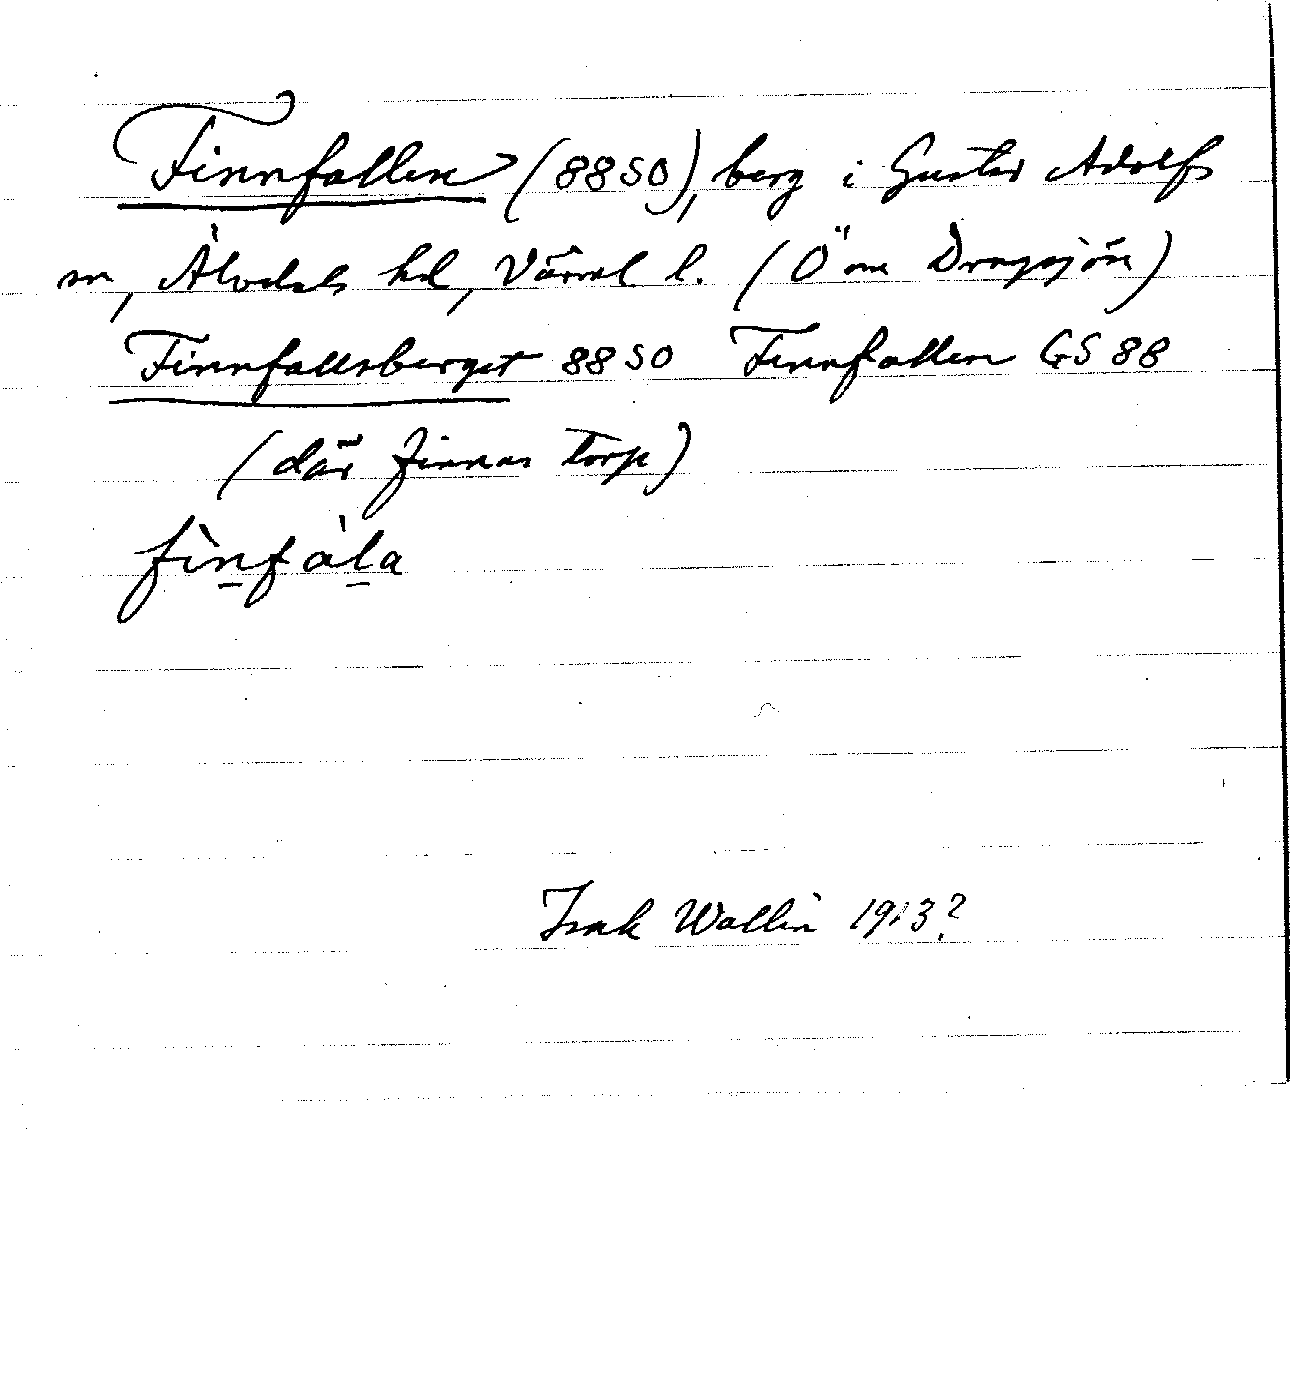 Finnfallen (88SO), berg i Gustav Adolfs
sn, Älvdals hd, Värml l. (Ö om Dragsjön)
Finnfallsberget 88 SO Finnfallen GS 88
(där finnes torp)
fìnfàla
Isak Wallin 1913?